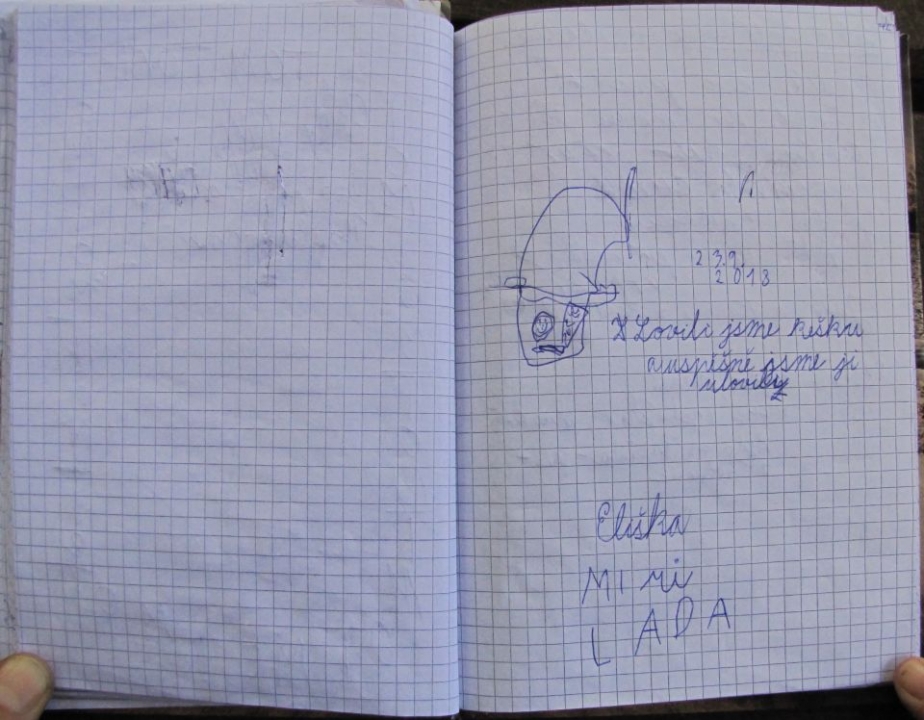 23.9.
2013
Lovili jsme kešku
a uspěšně jsme ji
ulovily
Eliška
Miri
LADA